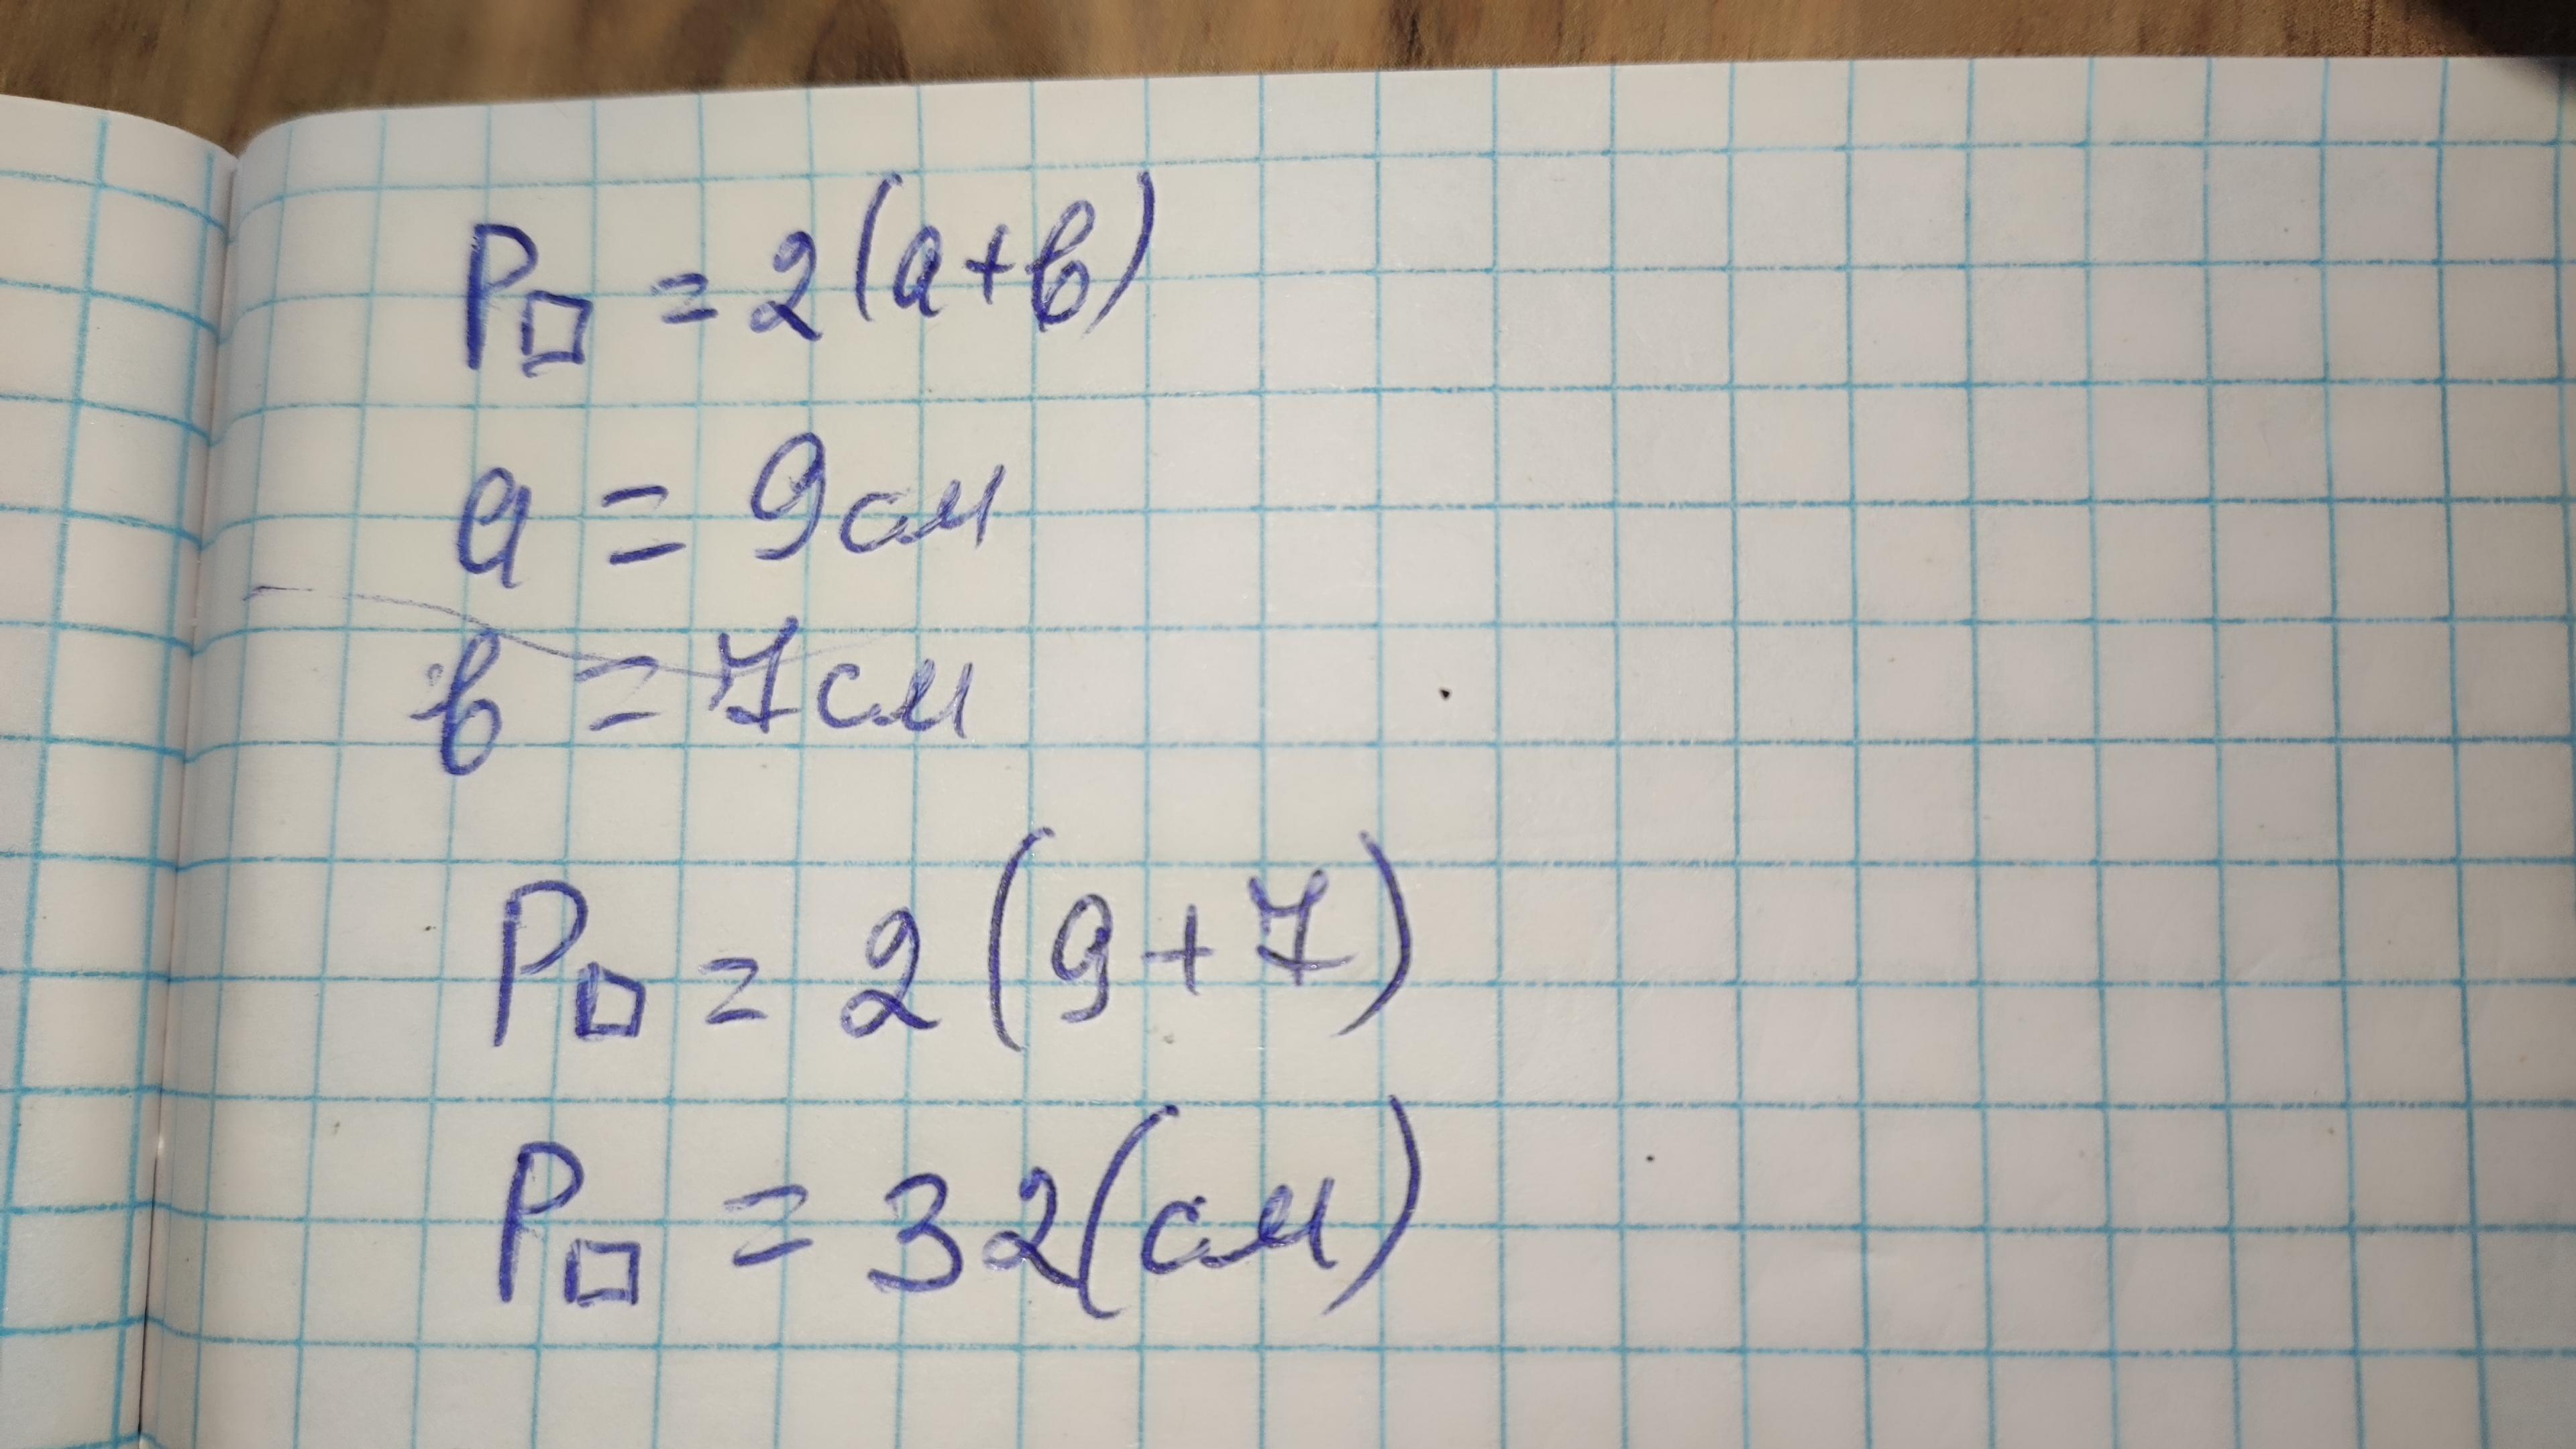 P□ = 2(a+b)
a = 9см
b = 7см
P□ = 2(9+7)
P□ = 32(см)